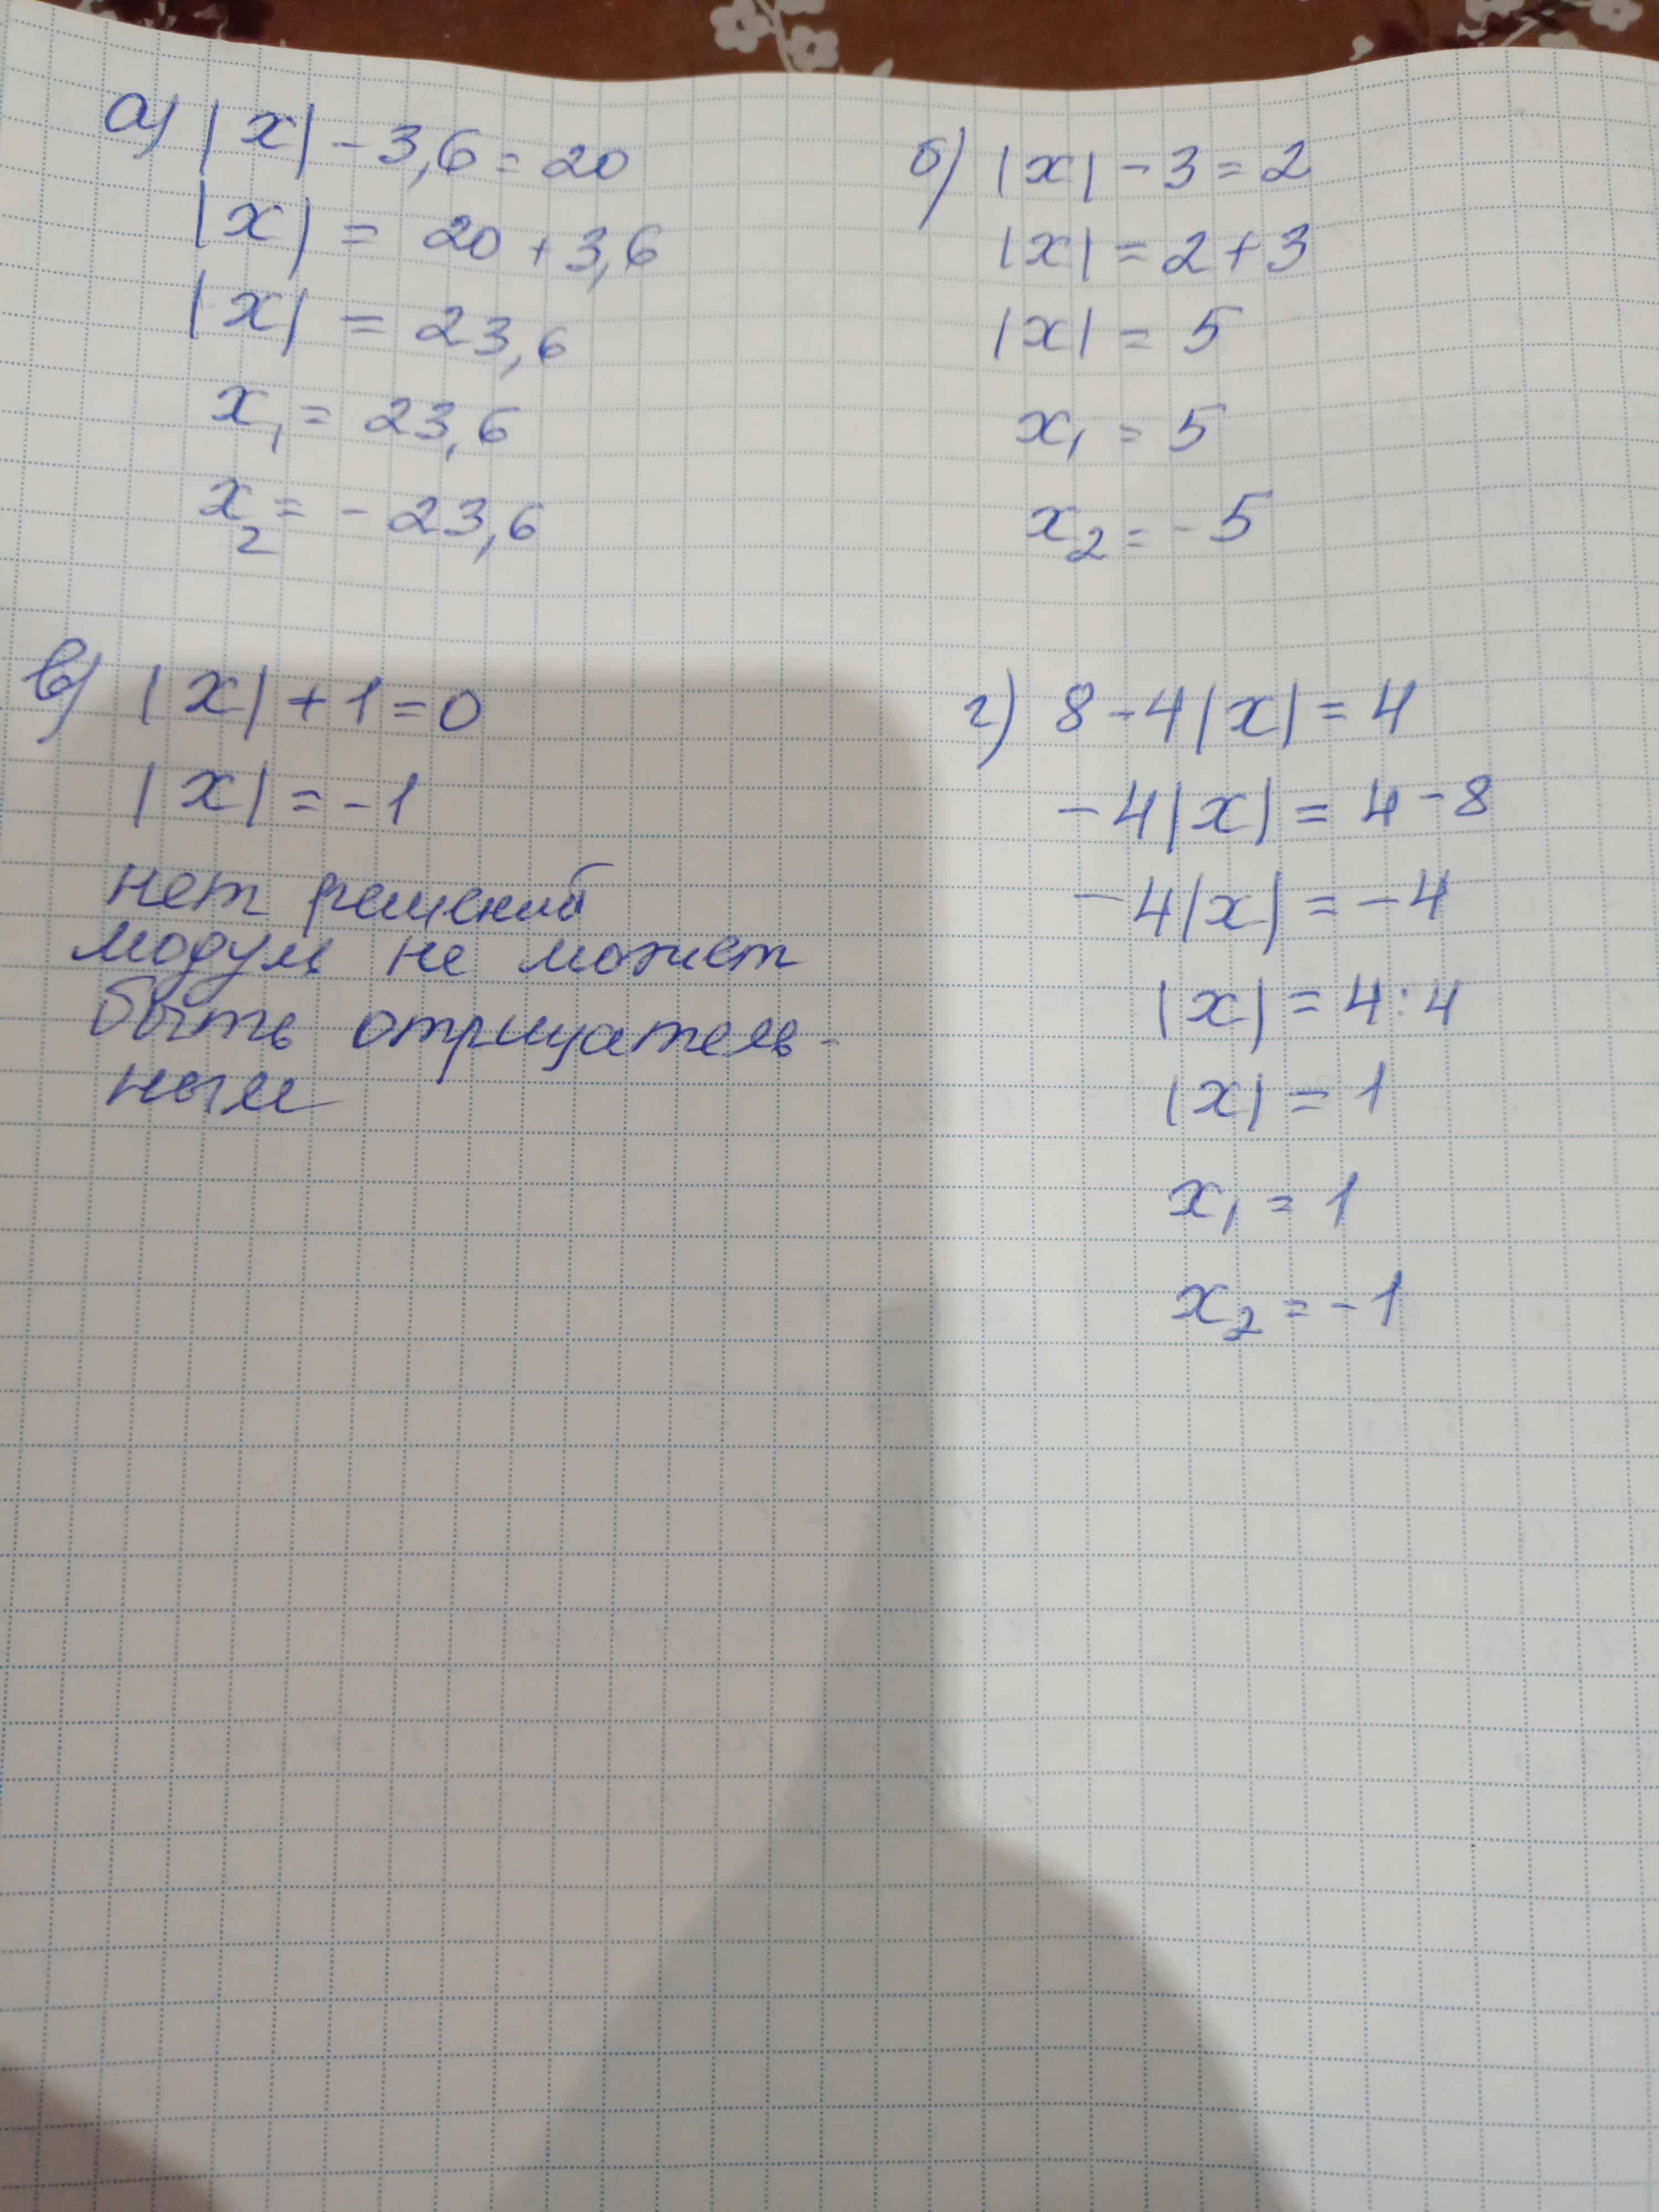 а) |x| - 3,6 = 20
|x| = 20 + 3,6
|x| = 23,6
x₁ = 23,6
x₂ = - 23,6
б) |x| - 3 = 2
|x| = 2 + 3
|x| = 5
x₁ = 5
x₂ = - 5
в) |x| + 1 = 0
|x| = - 1
нет решений
модуль не может
быть отрицатель-
ным
г) 8 - 4|x| = 4
- 4|x| = 4 - 8
- 4|x| = - 4
|x| = 4 : 4
|x| = 1
x₁ = 1
x₂ = - 1